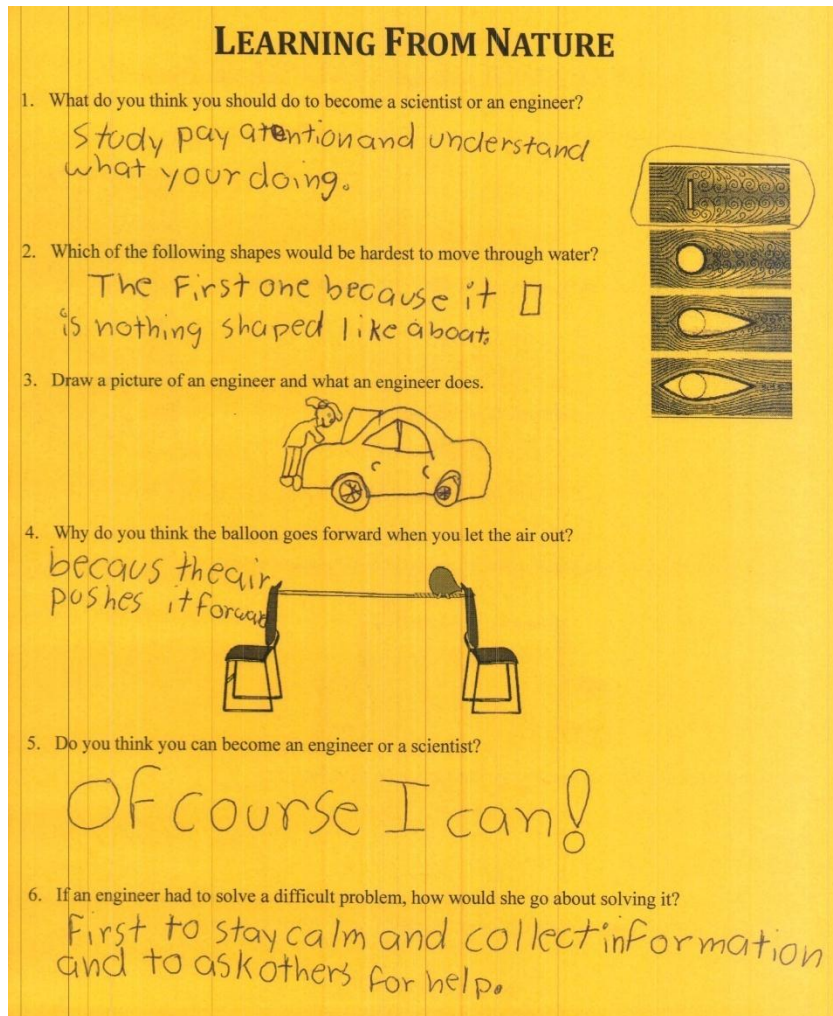 LEARNING FROM NATURE
1. What do you think you should do to become a scientist or an engineer?
Study pay atention and understand
what your doing.
2. Which of the following shapes would be hardest to move through water?
The First one because it
is nothing shaped like a boat.
3. Draw a picture of an engineer and what an engineer does.
4. Why do you think the balloon goes forward when you let the air out?
becaus the air
pushes it forward
5. Do you think you can become an engineer or a scientist?
Of course I can!
6. If an engineer had to solve a difficult problem, how would she go about solving it?
First to stay calm and collect information
and to ask others for help.